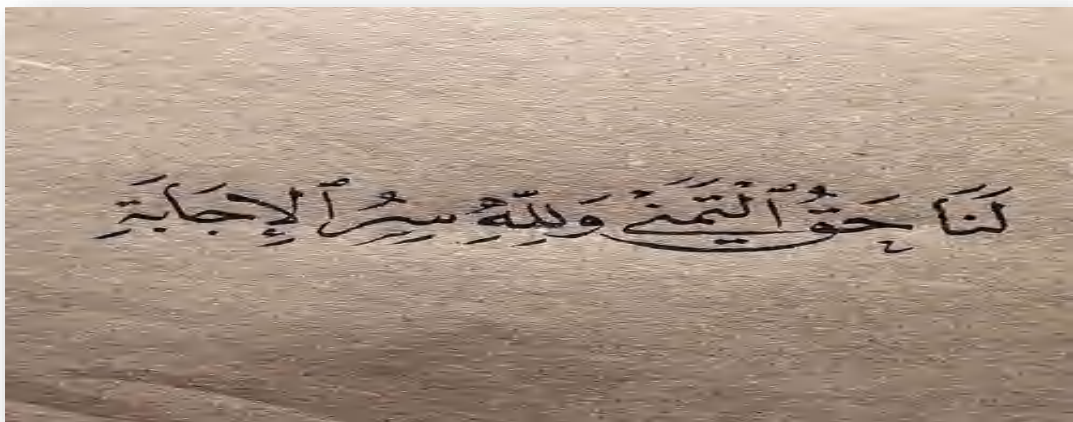 لَنَا حَقُّ ٱلْتَّمَنِّي وَلِلّٰهِ سِرُّ ٱلإِجَابَةِ